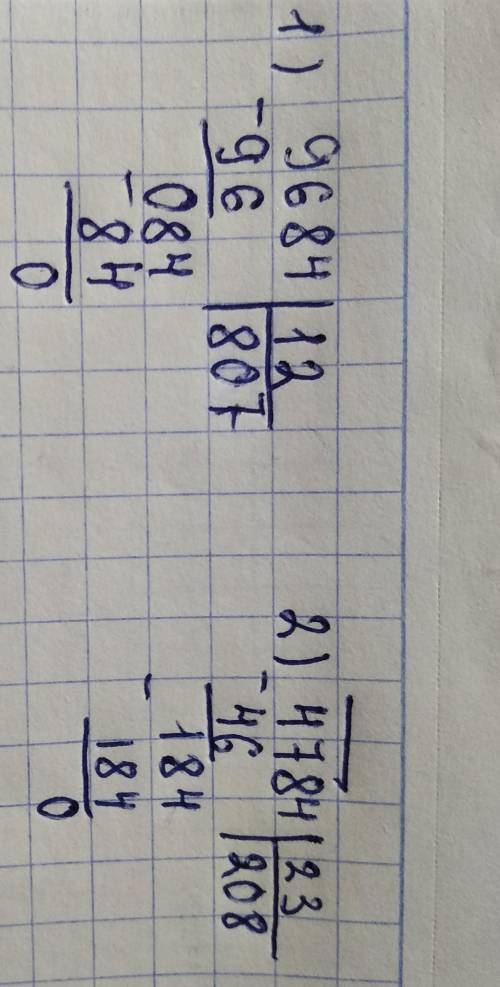 1) 9684 | 12
- 96 | 807
084
- 84
0
2) 4784 | 23
- 46 | 208
184
- 184
0